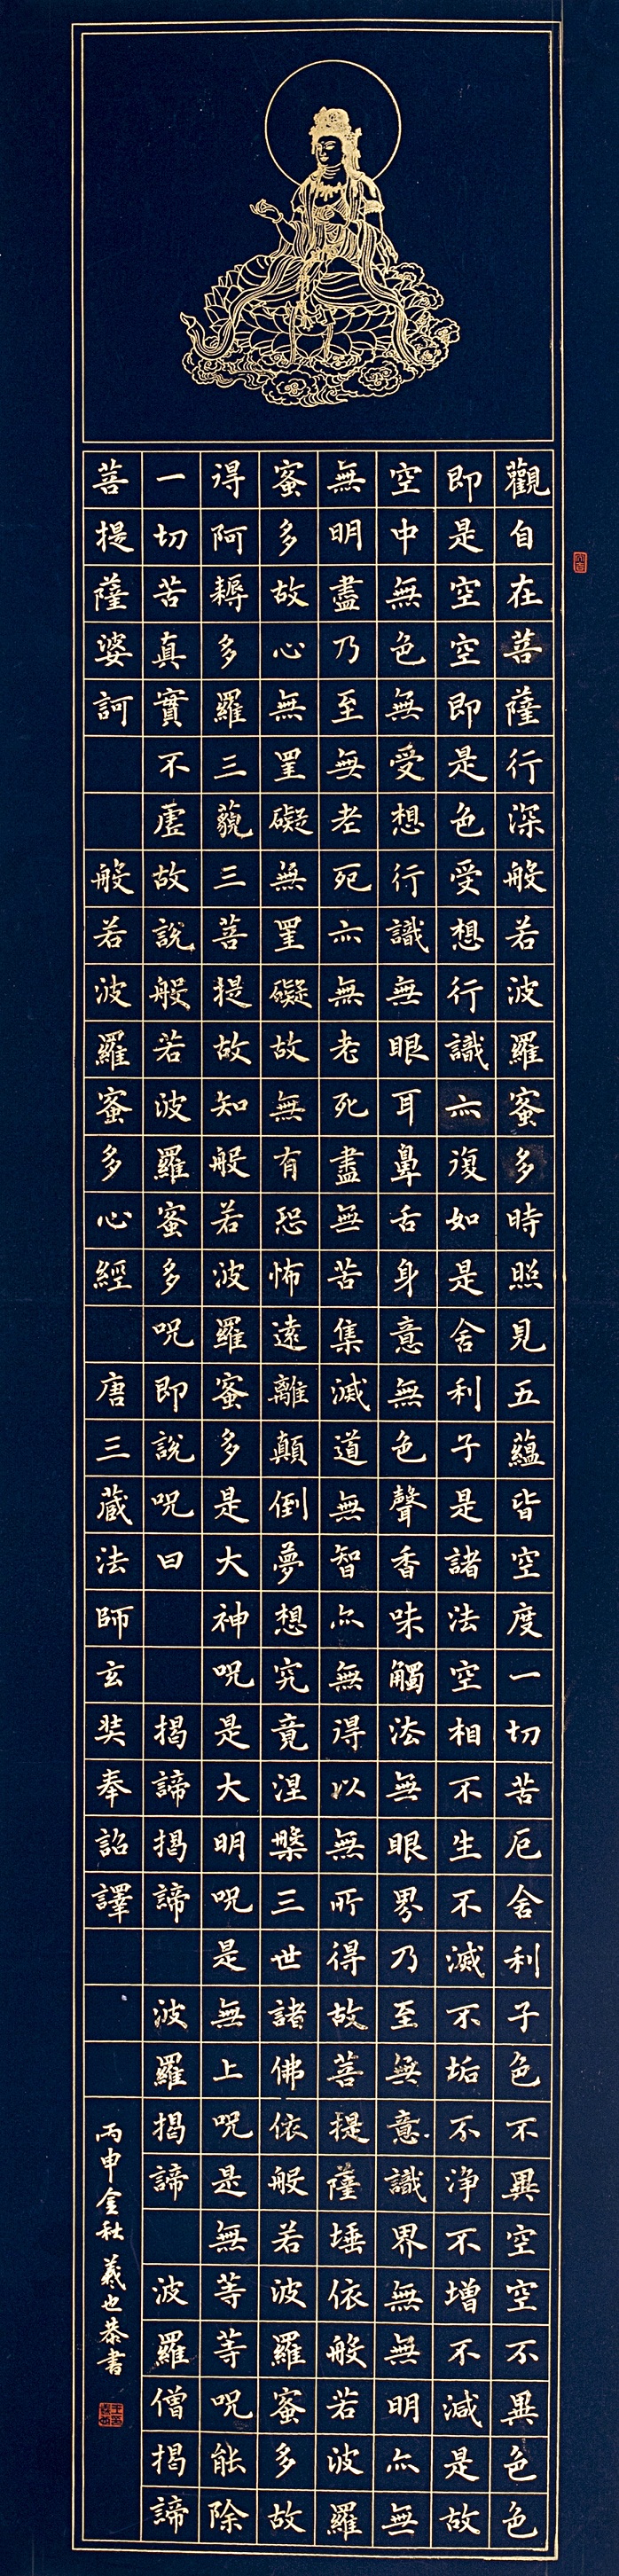 觀自在菩薩行深般若波羅蜜多時照見五蘊皆空度一切苦厄舍利子色不異空空不異色色
即是空空即是色受想行識亦復如是舍利子是諸法空相不生不滅不垢不浄不增不減是故
空中無色無受想行識無眼耳鼻舌身意無色聲香味觸法無眼界乃至無意識界無無明亦無
無明盡乃至無老死亦無老死盡無苦集滅道無智亦無得以無所得故菩提薩埵依般若波羅
蜜多故心無罣礙無罣礙故無有恐怖遠離顛倒夢想究竟涅槃三世諸佛依般若波羅蜜多故
得阿耨多羅三藐三菩提故知般若波羅蜜多是大神呪是大明呪是無上呪是無等等呪能除
一切苦真實不虛故說般若波羅蜜多呪即說呪曰 揭諦揭諦 波羅揭諦 波羅僧揭諦
菩提薩婆訶 般若波羅蜜多心經 唐三藏法師玄奘奉詔譯
丙申金秋 羲也恭書